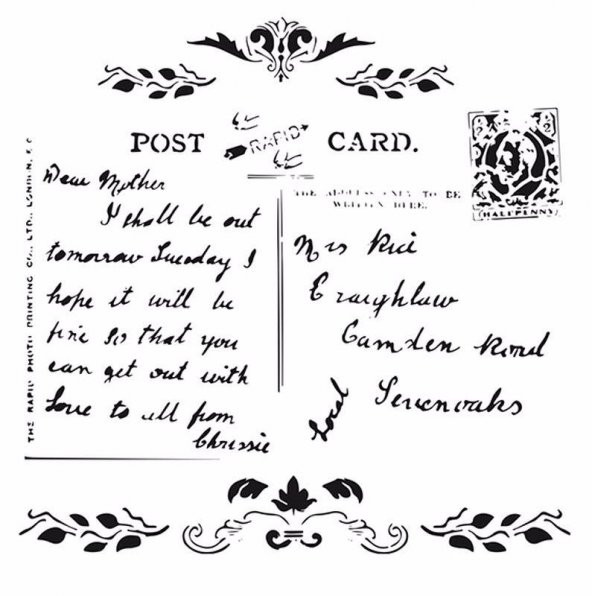 POST RAPID CARD.
THE ADDRESS ONLY TO BE
WRITTEN HERE.
½ ½
HALFPENNY
THE RAPID PHOTO PRINTING CO., LTD., LONDON, E.C
Dear Mother
I shall be out
tomorrow Tuesday I
hope it will be
fine so that you
can get out with
Love to all from
Chrissie
Mrs Rice
Craighlaw
Camden Road
Sevenoaks
Local